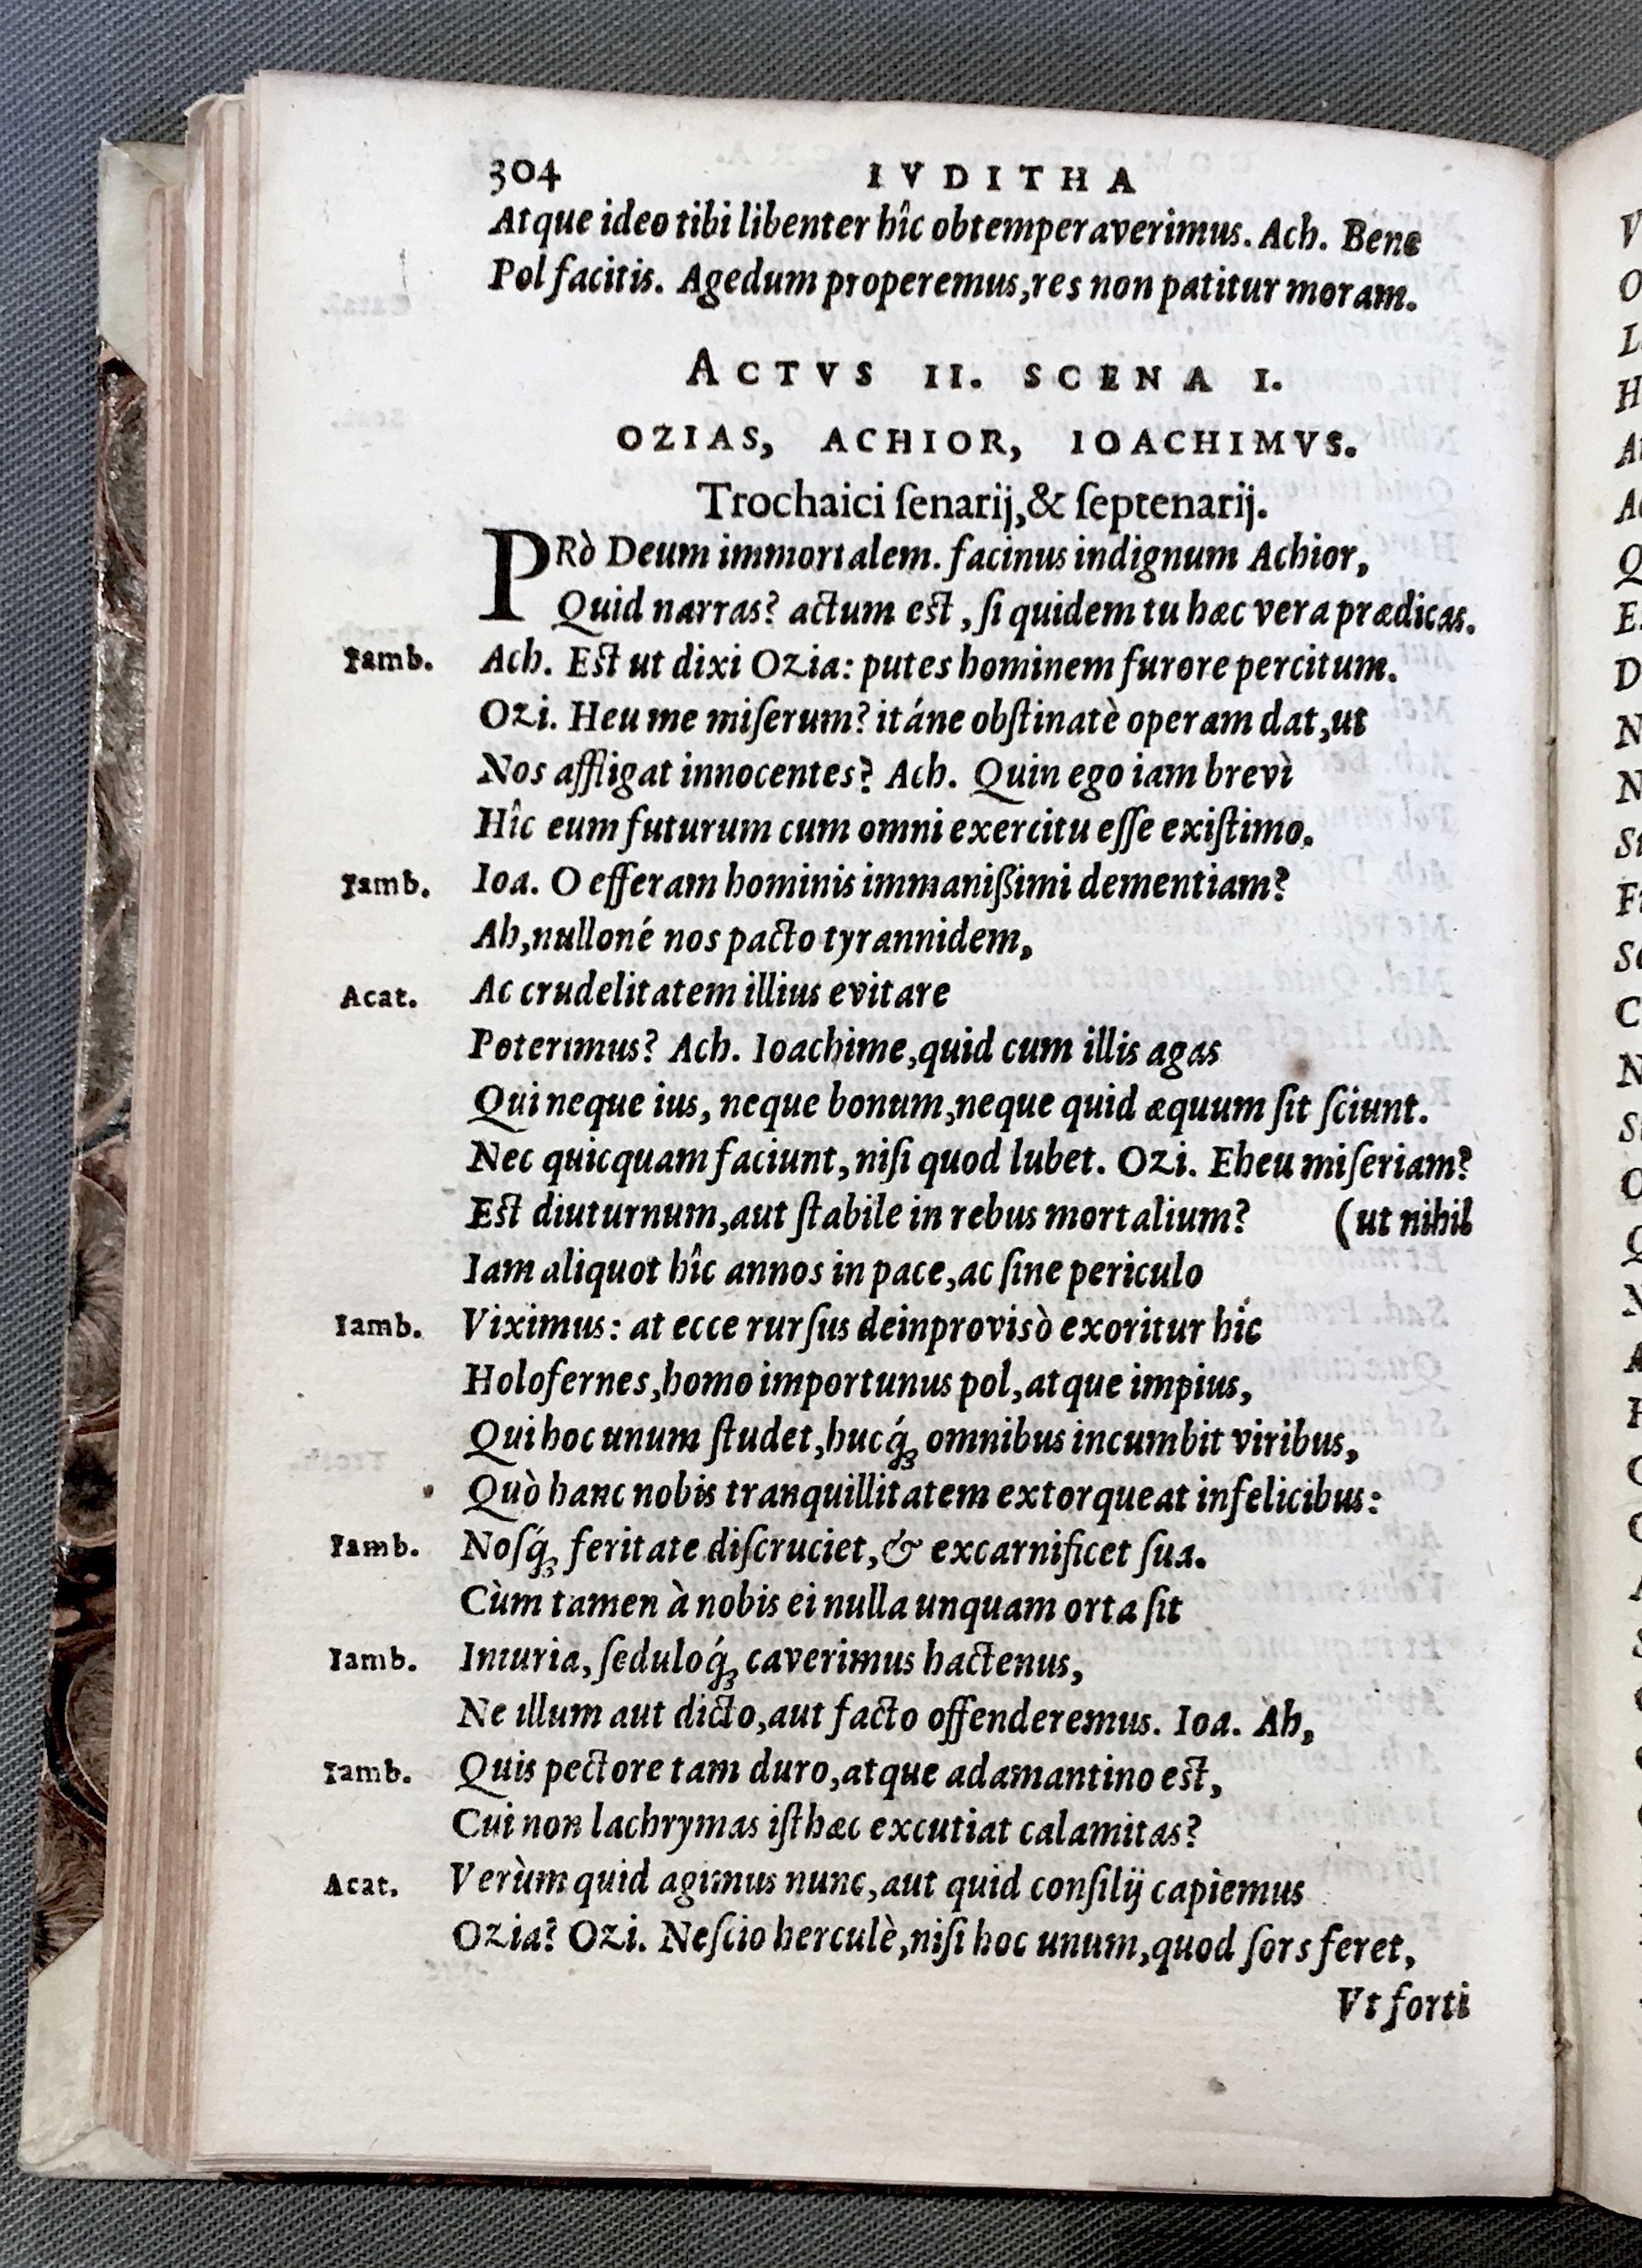 304 IVDITHA
Atque ideo tibi libenter hîc obtemperaverimus. Ach. Bene
Pol facitis. Agedum properemus, res non patitur moram.
ACTVS II. SCENA I.
OZIAS, ACHIOR, IOACHIMVS.
Trochaici ſenarij, & ſeptenarij.
PRò Deum immortalem. facinus indignum Achior,
Quid narras? actum eſt, ſi quidem tu hæc vera prædicas.
Iamb. Ach. Eſt ut dixi Ozia: putes hominem furore percitum.
Ozi. Heu me miſerum? itáne obſtinatè operam dat, ut
Nos affligat innocentes? Ach. Quin ego iam brevì
Hîc eum futurum cum omni exercitu eſſe exiſtimo.
Iamb. Ioa. O efferam hominis immaniſſimi dementiam?
Ah, nulloné nos pacto tyrannidem,
Acat. Ac crudelitatem illius evitare
Poterimus? Ach. Ioachime, quid cum illis agas
Qui neque ius, neque bonum, neque quid æquum ſit ſciunt.
Nec quicquam faciunt, niſi quod lubet. Ozi. Eheu miſeriam?
Eſt diuturnum, aut ſtabile in rebus mortalium? (ut nihil
Iam aliquot hîc annos in pace, ac ſine periculo
Iamb. Viximus: at ecce rurſus deinprovisò exoritur hic
Holofernes, homo importunus pol, atque impius,
Qui hoc unum ſtudet, hucq́ꝫ omnibus incumbit viribus,
Quò hanc nobis tranquillitatem extorqueat infelicibus:
Iamb. Noſq́ꝫ feritate diſcruciet, & excarnificet ſua.
Cùm tamen à nobis ei nulla unquam orta ſit
Iamb. Iniuria, ſeduloq́ꝫ caverimus hactenus,
Ne illum aut dicto, aut facto offenderemus. Ioa. Ah,
Iamb. Quis pectore tam duro, atque adamantino eſt,
Cui non lachrymas iſthæc excutiat calamitas?
Acat. Verùm quid agimus nunc, aut quid conſilij capiemus
Ozia? Ozi. Neſcio herculè, niſi hoc unum, quod ſors feret,
Vt forti